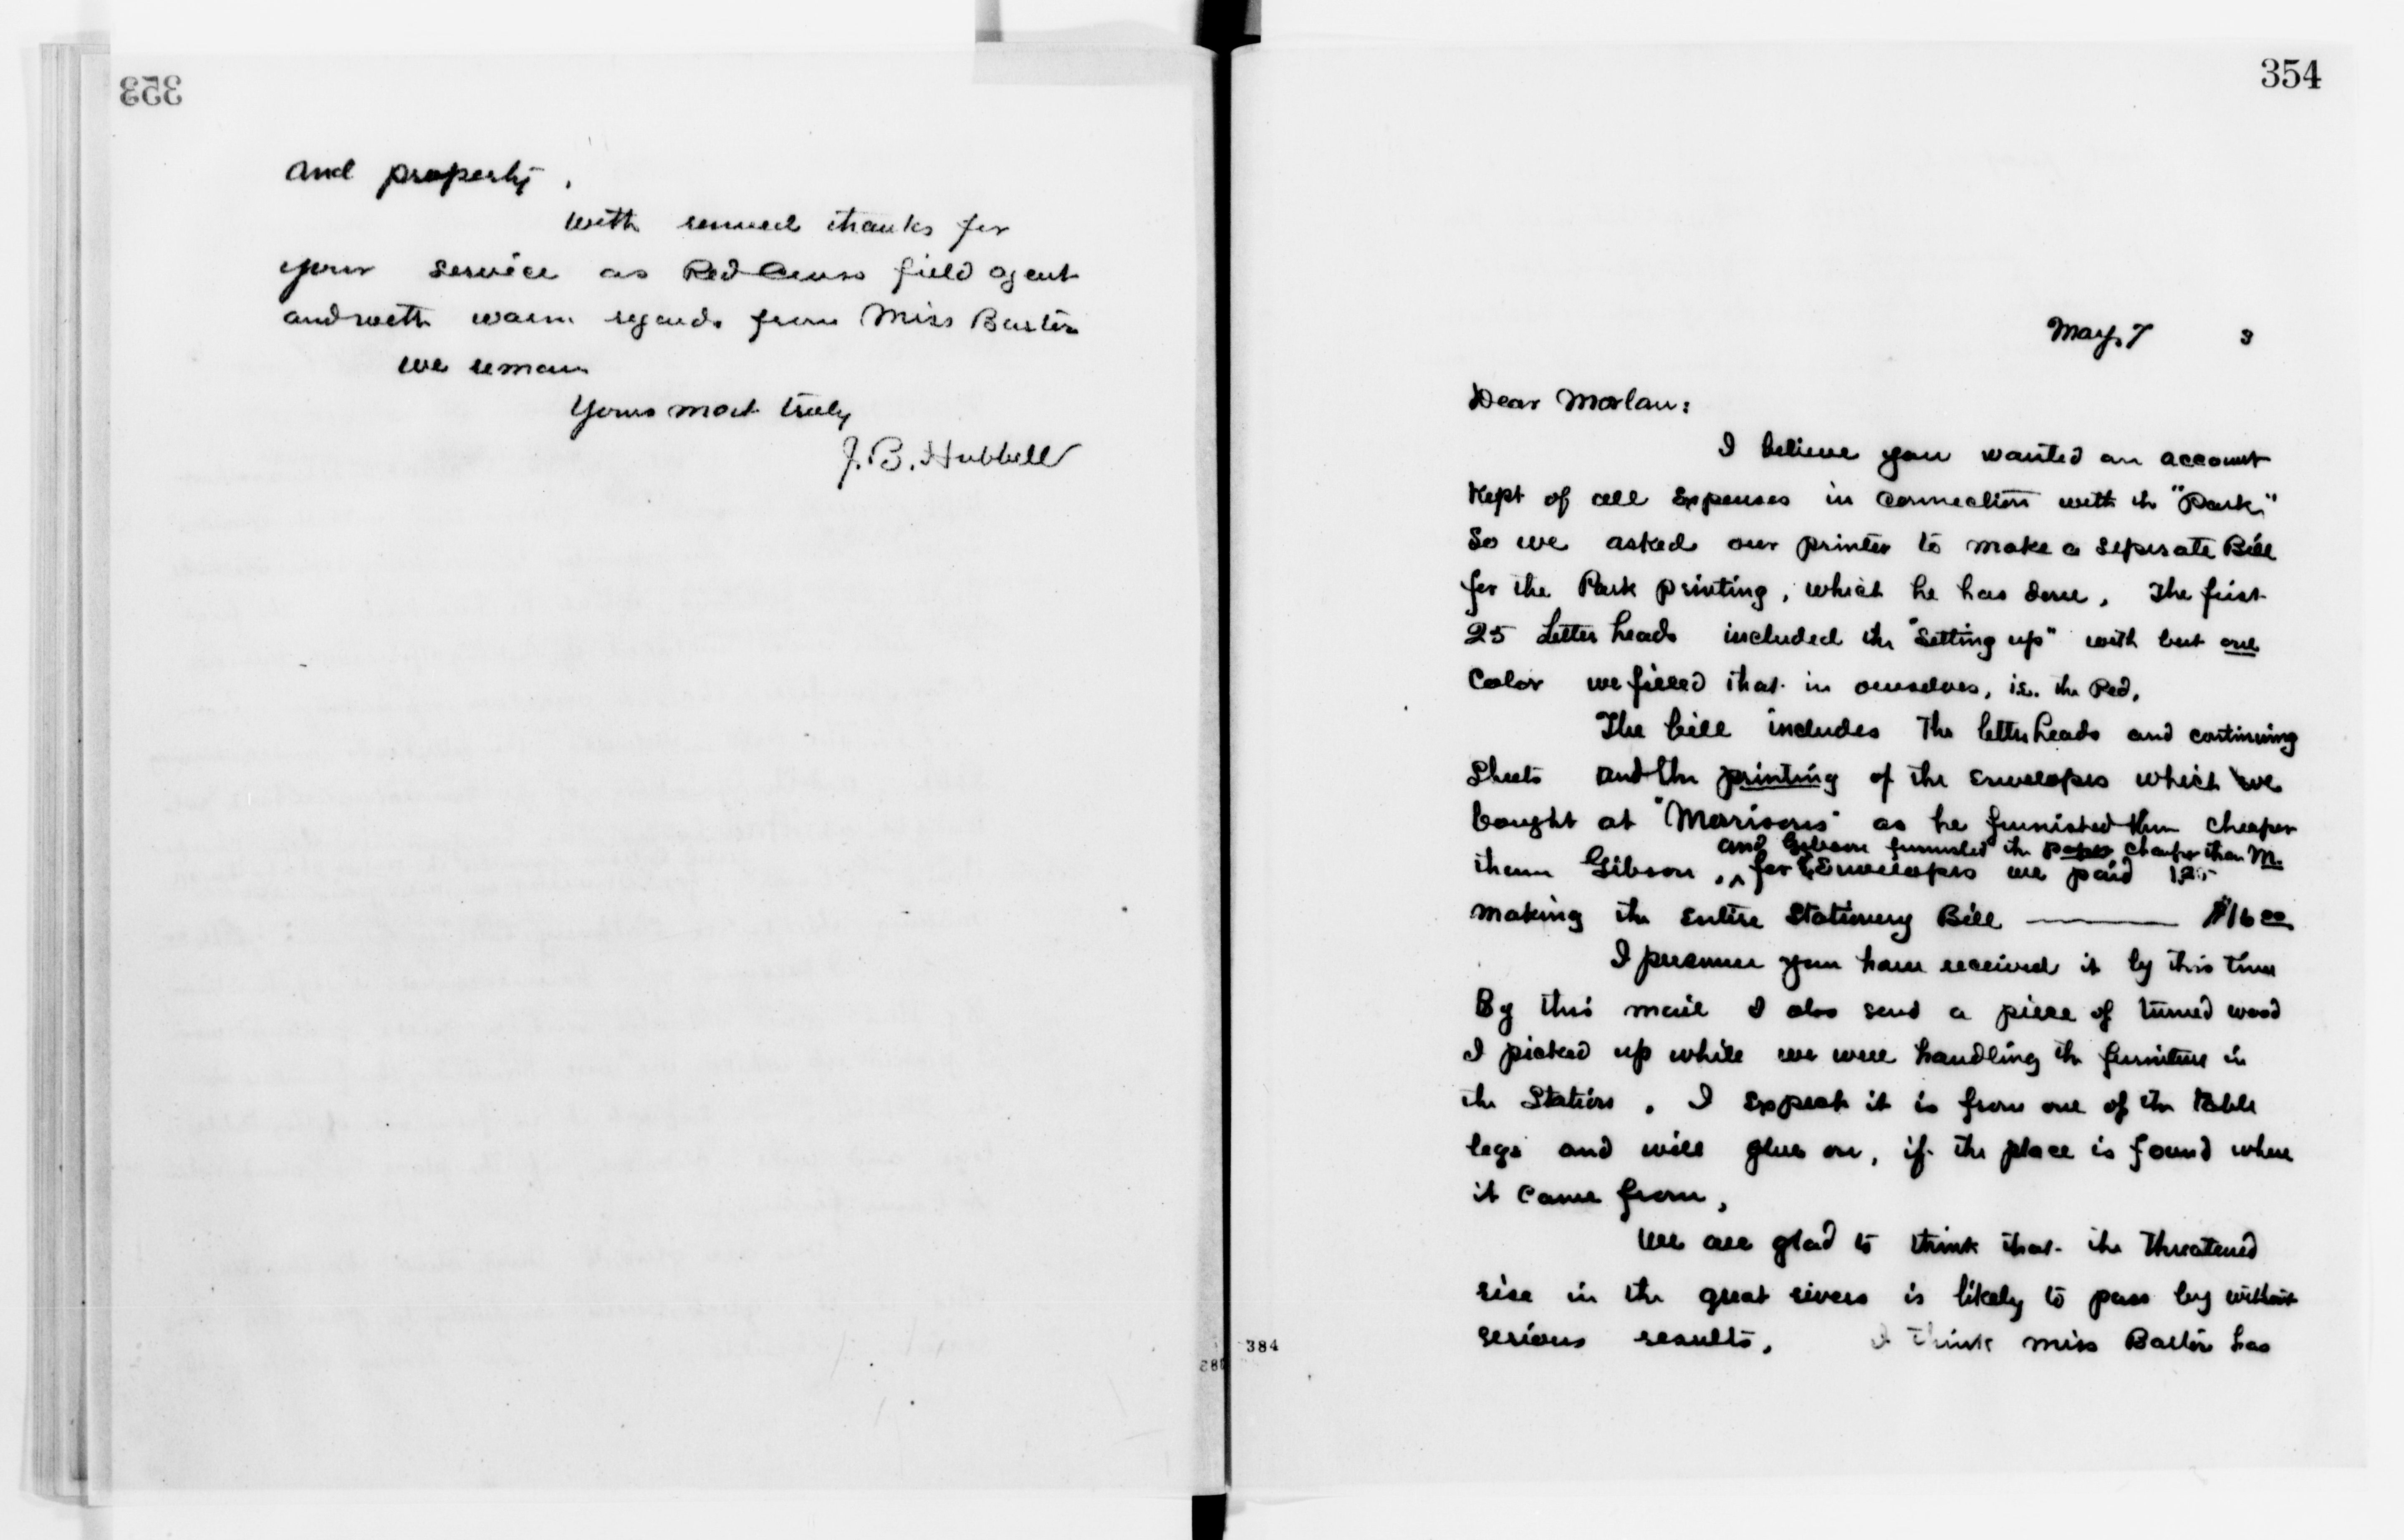 353
and property,
With renewed thanks for
your service as Red Cross field agent
and with warm regards from Miss Barton
we remain
Yours most truly
J. B. Hubbell
354
May, 7 3
Dear Morlan:
I believe you wanted an account
Kept of all Expenses in Connection with the "Park,"
So we asked our printer to make a seperate Bill
for the Park printing, which he has done, The first
25 Letter heads included the "Setting up" with but one
Color we filled that in ourselves, i.e. the Red,
The bill includes The letterheads and continuing
Sheets and the printing of the Envelopes which we
bought at "Morrisons" as he furnished them cheaper
and Gibson furnished the paper cheaper than M.
them Gibson , ^ for Envelopes we paid 1.25
making the Entire Stationery Bill ——— $16 00
I presume you have received it by this time
By this mail I also send a piece of turned wood
I picked up while we were handling the furniture in
the Station . I Expect it is from one of the table
legs and will glue on, if the place is found where
it Came from,
We are glad to think that the threatened
rise in the great rivers is likely to pass by without
serious results, I think miss Barton has
384